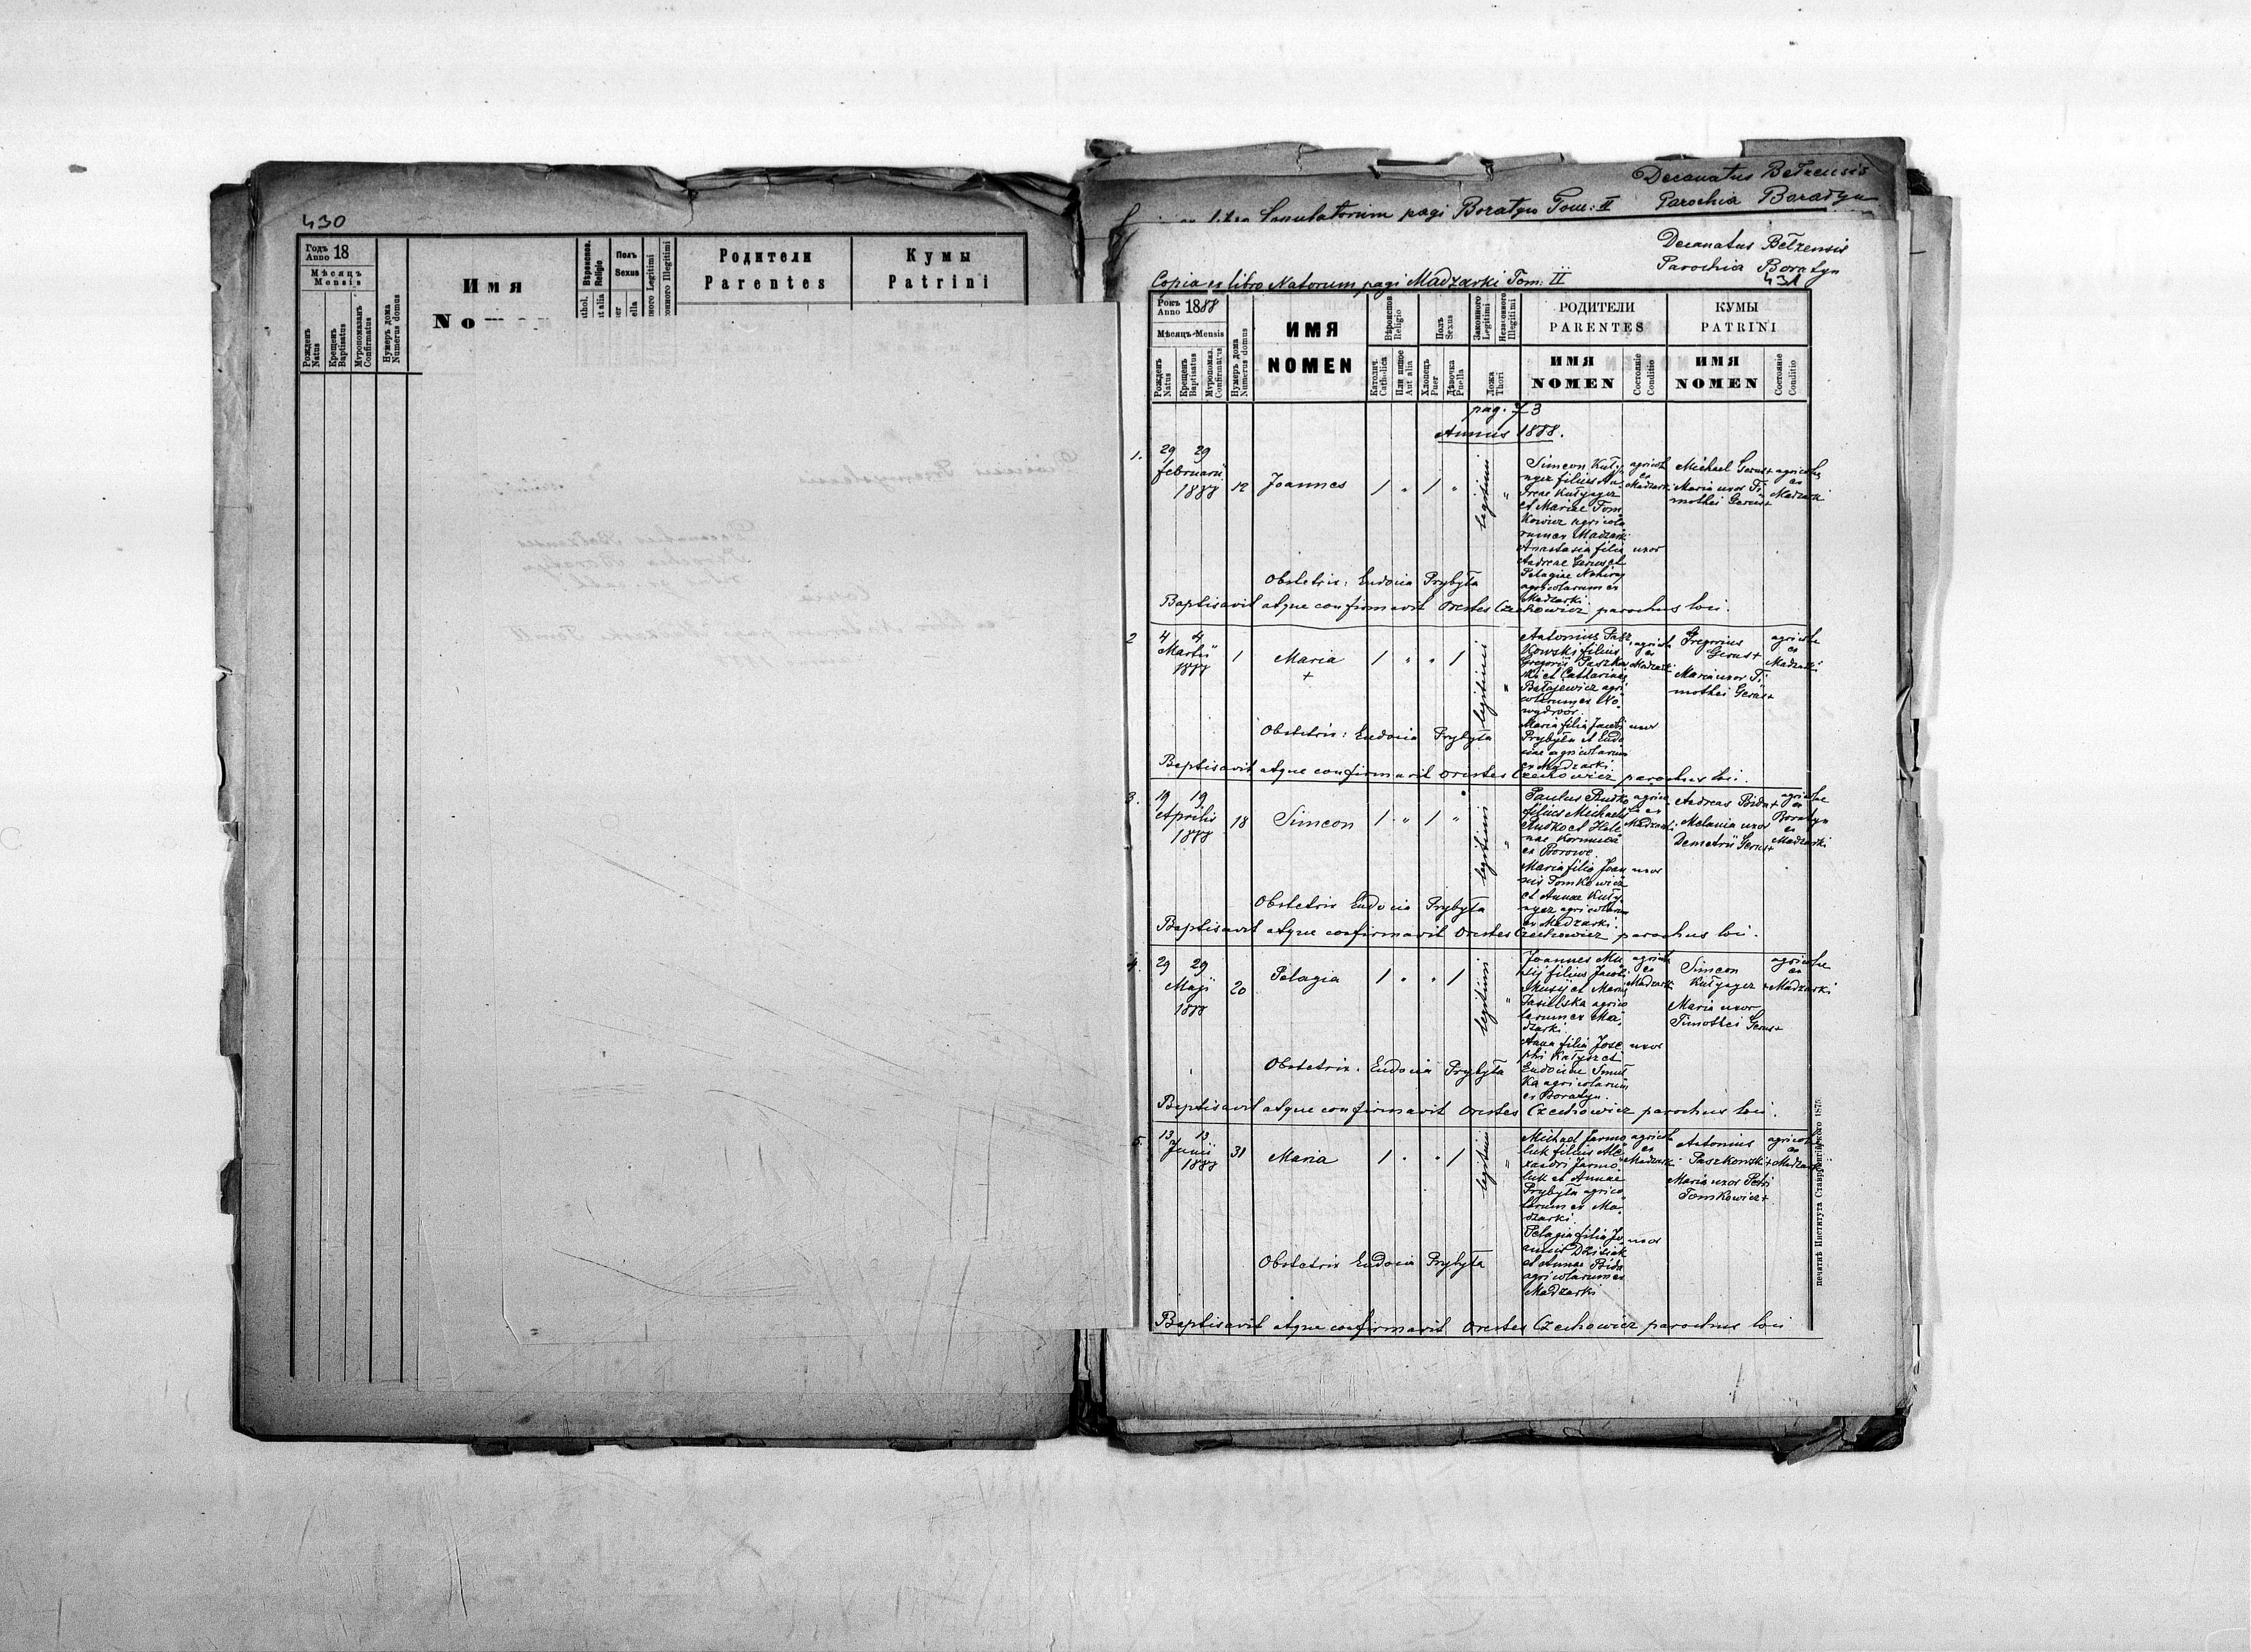 430
Годъ
Anno 18
Мѣсяцъ
Mensis
Рожденъ
Natus
Крещенъ
Baptisatus
Мѵропомазанъ
Confirmatus
Нумеръ дома
Numerus domus
Имя
No
Вѣроисповѣд.
Religio
Полъ
Sexus
Legitimi
Illegitimi
Родители
Parentes
Кумы
Patrini
Decanatus Bełzensis
ex libro Copulatorum pagi Boratyn Tom: II Parochia Boratyn
Decanatus Bełzensis
Parochia Boratyn
Copia ex libro Natorum pagi Madzarki Tom. II
431
Рокъ
Anno 1888
Мѣсяцъ-Mensis
Рожденъ
Natus
Крещенъ
Baptisatus
Мѵропомаз.
Confirmatus
Нумеръ дома
Numerus domus
ИМЯ
NOMEN
Religio
Католич.
Catholica
Или инное
Aut alia
Полъ
Sexus
Хлопецъ
Puer
Дѣвочка
Puella
Законного
Legitimi
Незаконного
Illegitimi
Ложа
Thori
РОДИТЕЛИ
PARENTES
ИМЯ
NOMEN
Состояніе
Conditio
КУМЫ
PATRINI
ИМЯ
NOMEN
Состояніе
Conditio
pag. 73
Annus 1888.
1. 29 29
februarii
1888 12 Joannes 1 " 1 " legitimi "
Simeon
filius
et Mariae Tom
kowicz agricola
rum ex Madzarki
Anastasia filia uxor
Andreae Gerus et
Pelagiae
agricolarum ex
Madzarki
agricola
ex
Madzarki
Michael Gerus +
Maria uxor Ti
mothei Gerus +
agricolae
ex
Madzarki
Obstetrix: Eudocia Prybyła
Baptisavit atque confirmavit Orestes Czechowicz parochus loci.
2 4 4
Martii
1888 1 Maria 1 " " 1 legitimi "
+
Antonius Pasz
kowski filius
Gregorii
et Catharinae
agri
colarum ex No
wydwór.
Maria filia Jacobi uxor
Prybyła et Eudo
ciae agricolarum
ex Madzarki
agricola
ex
Madzarki
Gregorius
Gerus +
Maria uxor Ti
mothei Gerus +
agricolae
ex
Madzarki
Obstetrix: Eudocia Prybyła
Baptisavit atque confirmavit Orestes Czechowicz parochus loci.
3. 19 19
Aprilis
1888 18 Simeon 1 " 1 " legitimi "
Paulus Rudko
filius Michaelis
Rudko et Hele
nae
ex Borowe
Maria filia Joan uxor
nis Tomkowicz
et Annae
agricolarum
ex Madzarki.
agrico
la ex
Madzarki
Andreas Bida +
Melania uxor
Demetrii Gerus +
agricolae
ex
Boratyn
ex
Madzarki
Obstetrix Eudocia Prybyła
Baptisavit atque confirmavit Orestes Czechowicz parochus loci.
4. 29 29
Maji
1888 20 Pelagia 1 " " 1 legitimi "
Joannes Mu
sij filius Jacobi
Musij et Mariae
agrico
larum ex Ma
dzarki.
Anna filia Jose uxor
phi et
Eudociae
agricolarum
ex Boratyn.
agricola
ex
Madzarki
Simeon
+
Maria uxor
Timothei Gerus +
agricolae
ex
Madzarki
Obstetrix. Eudocia Prybyła
Baptisavit atque confirmavit Orestes Czechowicz parochus loci.
5. 13 13
Junii
1888 31 Maria 1 " " 1 legitimi "
Michael Jarmo
luk filius Ale
xandri Jarmo
luk et Annae
Prybyła agrico
larum ex Ma
dzarki.
Pelagia filia Jo uxor
annis
et Annae Bida
agricolarum ex
Madzarki
agricola
ex
Madzarki
Antonius
Paszkowski +
Maria uxor Petri
Tomkowicz +
agricolae
ex
Madzarki
Obstetrix Eudocia Prybyła
Baptisavit atque confirmavit Orestes Czechowicz parochus loci
печатнѣ Института Ставропигійского 1875.